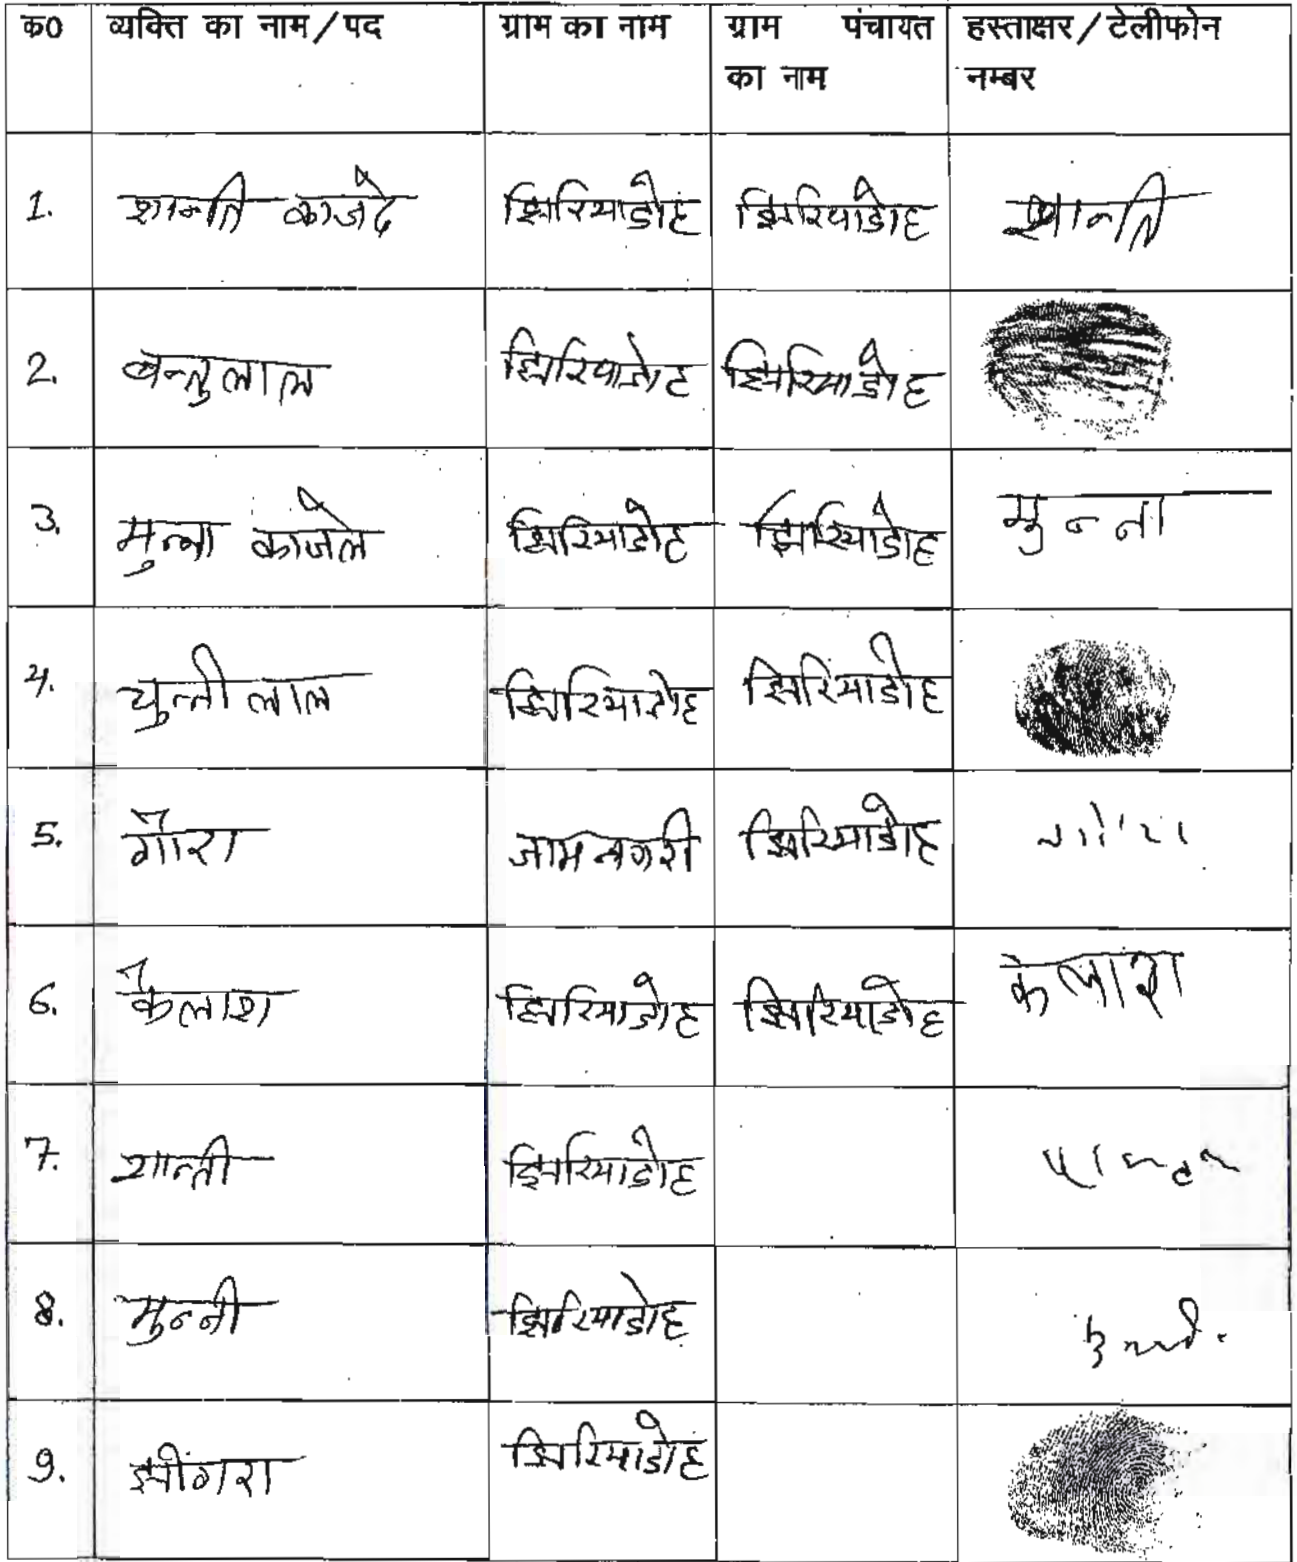 क0 व्यक्ति का नाम/पद ग्राम का नाम ग्राम पंचायत हस्ताक्षर/टेलीफोन
का नाम नम्बर
1. शान्ति काजदे झिरियाडोह झिरियाडोह शान्ति
2. बन्तुलाल झिरियाडोह झिरियाडोह
3. मुन्ना काजले झिरियाडोह झिरियाडोह मुन्ना
4. चुन्नी लाल झिरियाडोह झिरियाडोह
5. गौरा जामनगरी झिरियाडोह
6. कैलाश झिरियाडोह झिरियाडोह कैलाश
7. शान्ती झिरियाडोह
8. मुन्नी झिरियाडोह
9. झींगरा झिरियाडोह